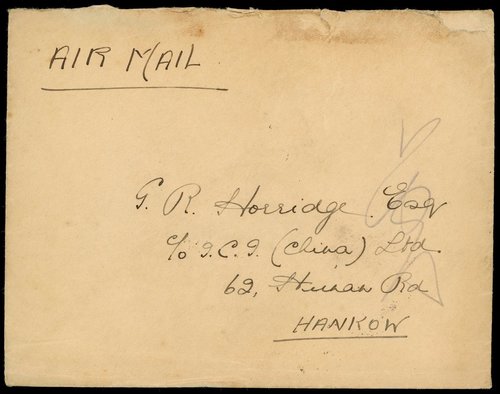 AIR MAIL
G. R. Horridge. Esq
c/o I.C.I. (China) Ltd
62, Hunan Rd
HANKOW